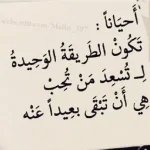 أَحيَاناً :
تَكُونْ الطَريقَةُ الوَحيدةُ
لِـ تُسْعِدَ مَنْ تُحِبْ
هِي أَنْ تَبْقَى بعِيداً عَنْه